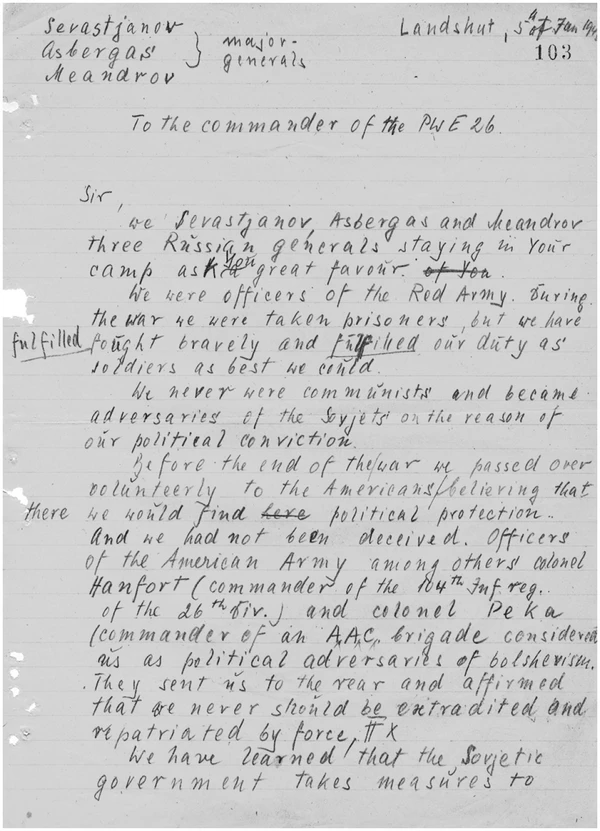 Sevastjanov
Asbergas } major-
Meandrov generals
Landshut, 5th of Jan 194
103
To the commander of the PWE 26.
Sir,
we Sevastjanov, Asbergas and Meandrov
three Russian generals staying in Your
camp ask You great favour. of You
We were officers of the Red Army. During
the war we were taken prisoners, but we have
fulfilled fought bravely and fulfilled our duty as
soldiers as best we could.
We never were communists and became
adversaries of the Sovjets on the reason of
our political conviction.
Before the end of the war we passed over
volunteerly to the Americans believing that
there we would find here political protection.
And we had not been deceived. Officers
of the American Army among others colonel
Hanfort (commander of the 104th Inf. reg.
of the 26th Div.) and colonel Peka
(commander of an A.A.C. brigade considered
us as political adversaries of bolshevism.
They sent us to the rear and affirmed
that we never should be extradited and
repatriated by force, II x
We have learned that the Sovjetic
government takes measures to